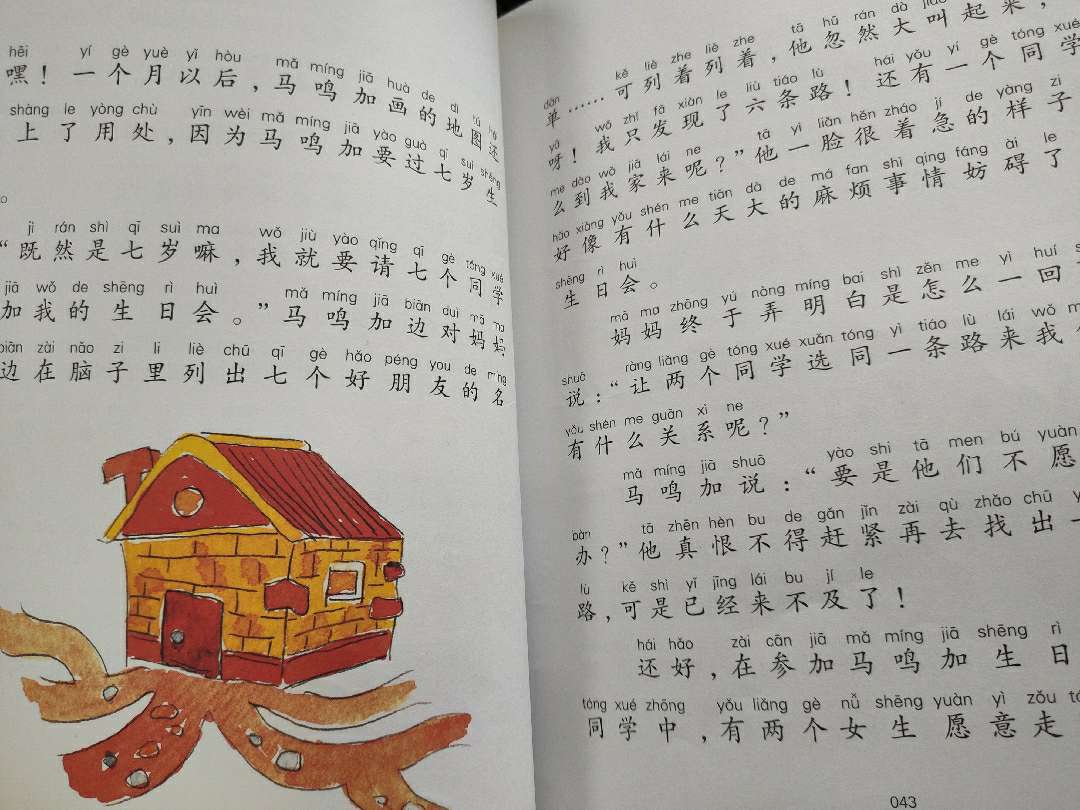 hēi yí gè yuè yǐ hòu mǎ míng jiā huà de dì tú hái
嘿！一个月以后，马鸣加画的地图还
shàng le yòng chù yīn wèi mǎ míng jiā yào guò qī suì shēng
上了用处，因为马鸣加要过七岁生
。
jì rán shì qī suì ma wǒ jiù yào qǐng qī gè tóng xué
“既然是七岁嘛，我就要请七个同学
jiā wǒ de shēng rì huì mǎ míng jiā biān duì mā ma
加我的生日会。”马鸣加边对妈妈
biān zài nǎo zi li liè chū qī gè hǎo péng you de míng
边在脑子里列出七个好朋友的名
dān kě liè zhe liè zhe tā hū rán dà jiào
单……可列着列着，他忽然大叫起来，
yā wǒ zhǐ fā xiàn le liù tiáo lù hái yǒu yí gè tóng xué
呀！我只发现了六条路！还有一个同学
me dào wǒ jiā lái ne tā yì liǎn hěn zháo jí de yàng zi
么到我家来呢？”他一脸很着急的样子
hǎo xiàng yǒu shén me tiān dà de má fan shì qing fáng ài le
好像有什么天大的麻烦事情妨碍了
shēng rì huì
生日会。
mā ma zhōng yú nòng míng bai shì zěn me yì huí
妈妈终于弄明白是怎么一回
shuō ràng liǎng gè tóng xué xuǎn tóng yì tiáo lù lái wǒ
说：“让两个同学选同一条路来我
yǒu shén me guān xì ne
有什么关系呢？”
mǎ míng jiā shuō yào shi tā men bú yuàn
马鸣加说：“要是他们不愿
bàn tā zhēn hèn bu de gǎn jǐn zài qù zhǎo chū
办？”他真恨不得赶紧再去找出一
lù kě shì yǐ jīng lái bu jí le
路，可是已经来不及了！
hái hǎo zài cān jiā mǎ míng jiā shēng rì
还好，在参加马鸣加生日
tóng xué zhōng yǒu liǎng gè nǚ shēng yuàn yì zǒu
同学中，有两个女生愿意走
043